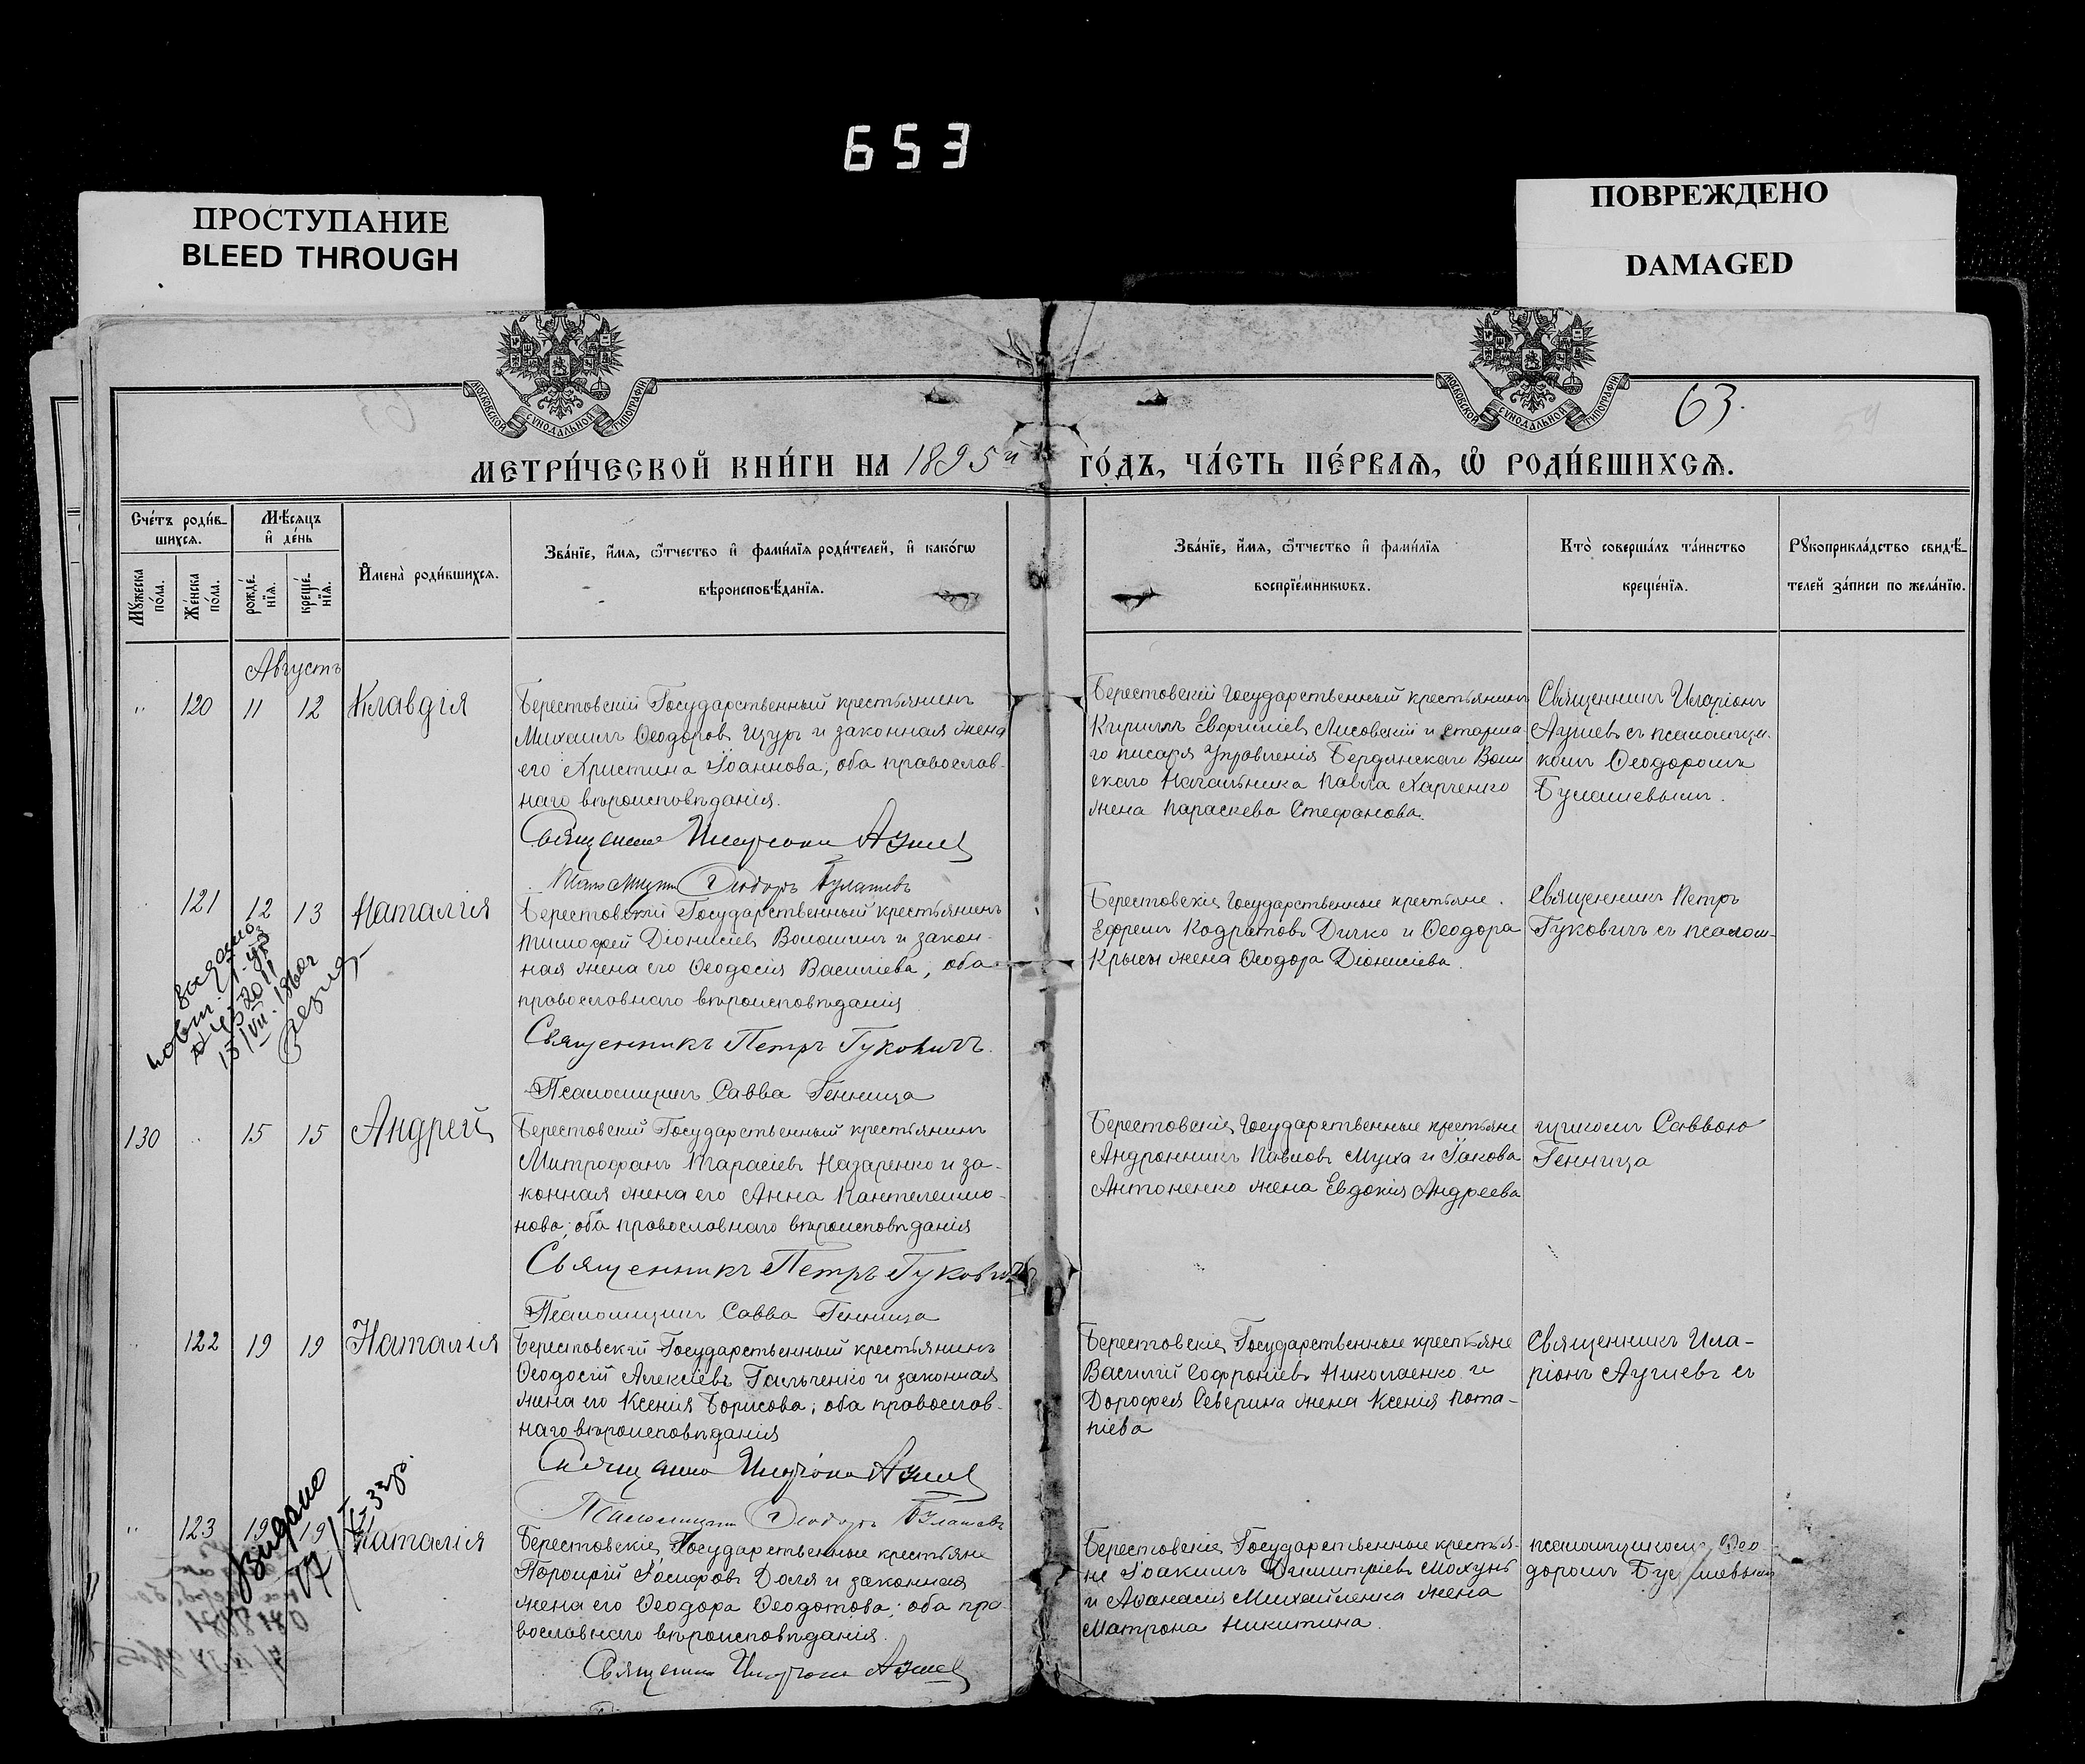 653
ПРОСТУПАНИЕ
BLEED THROUGH
ПОВРЕЖДЕНО
DAMAGED
МОСКОВСКОЙ СУНОДАЛЬНОЙ ТИПОГРАФІИ
МОСКОВСКОЙ СУНОДАЛЬНОЙ ТИПОГРАФІИ
63.
МЕТРИ́ЧЕСКОЙ КНИ́ГИ НА 1895й ГО́ДЪ, ЧА́СТЬ ПЕ́РВАѦ, Ѡ РОДИ́ВШИХСѦ.
Сче́тъ роди́в-
шихсѧ.
Мѣ́сѧцъ
и де́нь
Мꙋ́жеска
по́ла.
Же́нска
по́ла.
рожде́-
нїѧ.
креще́-
нїѧ.
И҆мена̀ роди́вшихсѧ.
Зва́нїе, и҆́мѧ, ѻ҆́тчество и҆ фами́лїѧ роди́телей, и҆ како́гѡ
вѣроисповѣ́данїѧ.
Зва́нїе, и҆́мѧ, ѻ҆́тчество и҆ фами́лїѧ
воспрїе́мникѡвъ.
Кто̀ соверша́лъ та́инство
креще́нїѧ.
Рꙋкоприкла́дство свидѣ́-
телей за́писи по жела́нїю.
Августъ
" 120 11 12 Клавдія
Берестовскій Государственный крестьянинъ
Михаилъ Ѳеодоровъ Щуръ и законная жена
его Христина Іоаннова; оба православ-
наго вѣроисповѣданія.
Священникъ Иларіонъ
Псаломщикъ Ѳеодоръ
Берестовскій Государственный крестьянинъ
Кириллъ Евфиміевъ Лисовскій и старша-
го писаря Управленія Бердянскаго Воин
скаго Начальника Павла Харченко
жена Параскева Стефанова.
Священникъ Иларіонъ
съ псаломщи-
комъ Ѳеодоромъ
121 12 13 Наталія
Берестовскій Государственный крестьянинъ
Тимофей Діонисіевъ Волошинъ и закон-
ная жена его Ѳеодосія Василіева; оба
православнаго вѣроисповѣданія
Священникъ Петръ Гуковичъ.
Псаломщикъ Савва Генница
Берестовскіе Государственные крестьяне.
Ефремъ Кодратовъ Дичко и Ѳеодора
Крысы жена Ѳеодора Діонисіева.
Священникъ Петръ
Гуковичъ съ псалом-
13/VII.
130 " 15 15 Андрей
Берестовскій Государственный крестьянинъ
Митрофанъ Тарасіевъ Назаренко и за-
конная жена его Анна Пантелеимо-
нова; оба православнаго вѣроисповѣданія
Священникъ Петръ Гуковичъ
Псаломщикъ Савва Генница
Берестовскіе Государственные крестьяне
Андронникъ Павловъ Муха и Іакова
Антоненко жена Евдокія Андреева
щикомъ Саввою
Генница
122 19 19 Наталія
Берестовскій Государственный крестьянинъ
Ѳеодосій Алексіевъ Гальченко и законная
жена его Ксенія Борисова; оба православ-
наго вѣроисповѣданія
Священникъ Иларіонъ
Псаломщикъ Ѳеодоръ
Берестовскіе Государственные крестьяне
Василій Софроніевъ Николаенко и
Дорофея Северина жена Ксенія Пота-
піева
Священникъ Ила-
ріонъ съ
" 123 19 19 Наталія
Видано
Берестовскіе Государственные крестьяне
Порфирій Іосифовъ Доля и законная
жена его Ѳеодора Ѳеодотова; оба пра-
вославнаго вѣроисповѣданія.
Священникъ Иларіонъ
Берестовскіе Государственные крестья-
не Іоакимъ Димитріевъ Мохунь
и Аѳанасія Михайленка жена
Матрона Никитина.
псаломщикомъ Ѳео-
доромъ